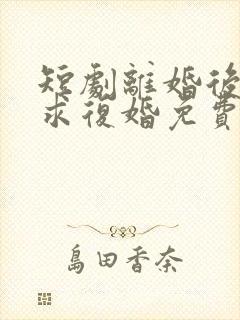 短劇離婚後
求復婚免費
島田香奈